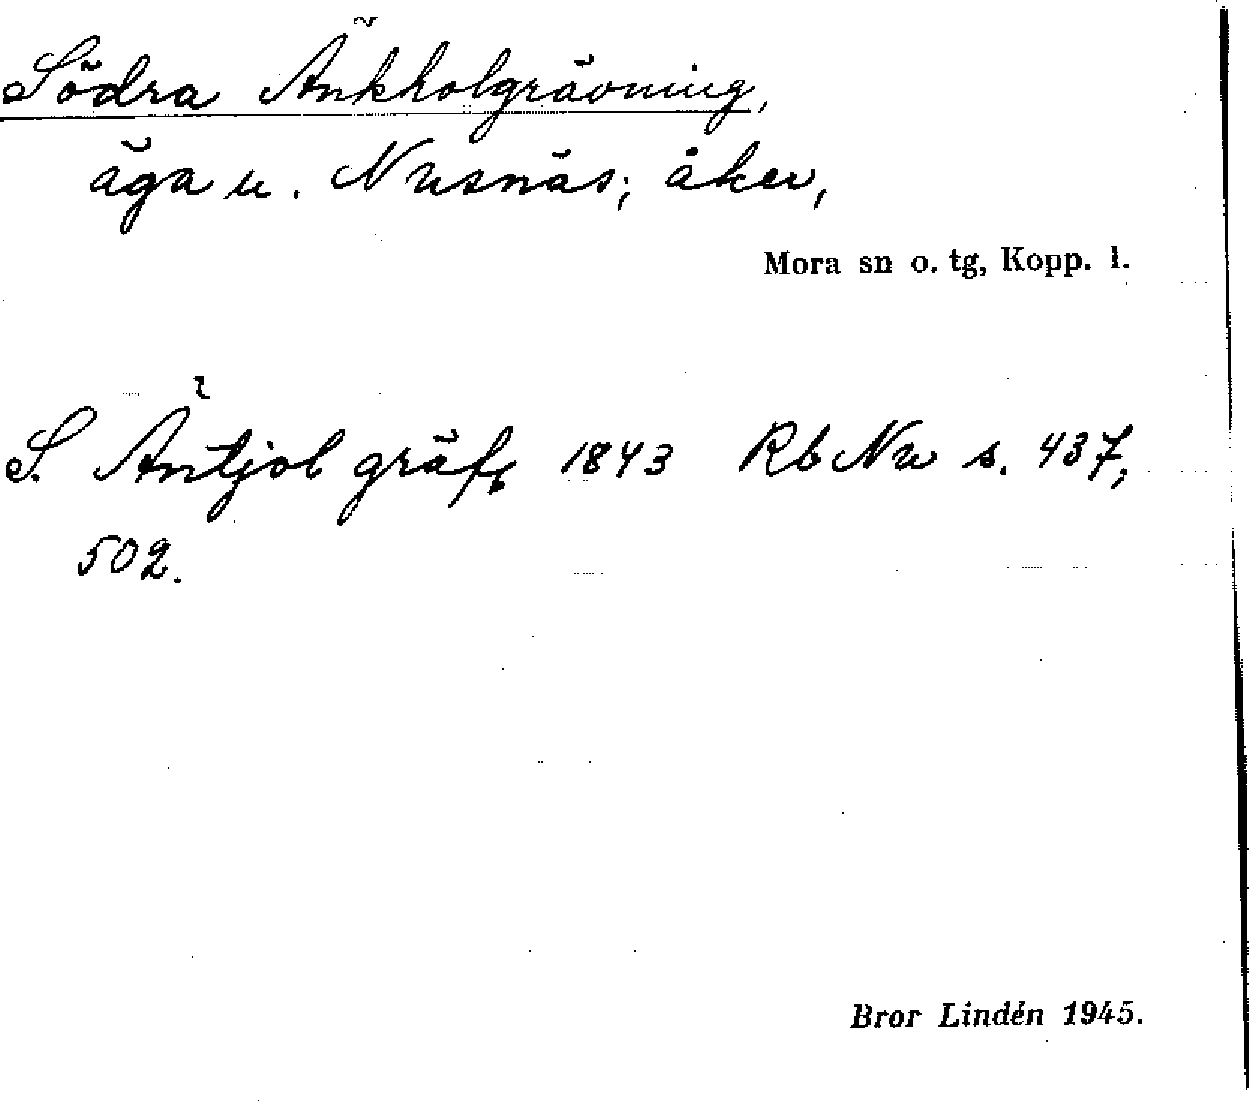 Södra Änkholgrävning,
äga u. Nusnäs; åker,
Mora sn o. tg, Kopp. l.
S. Äntjol gräf, 1843 Rb Nu s. 437,
502.
Bror Lindén 1945.